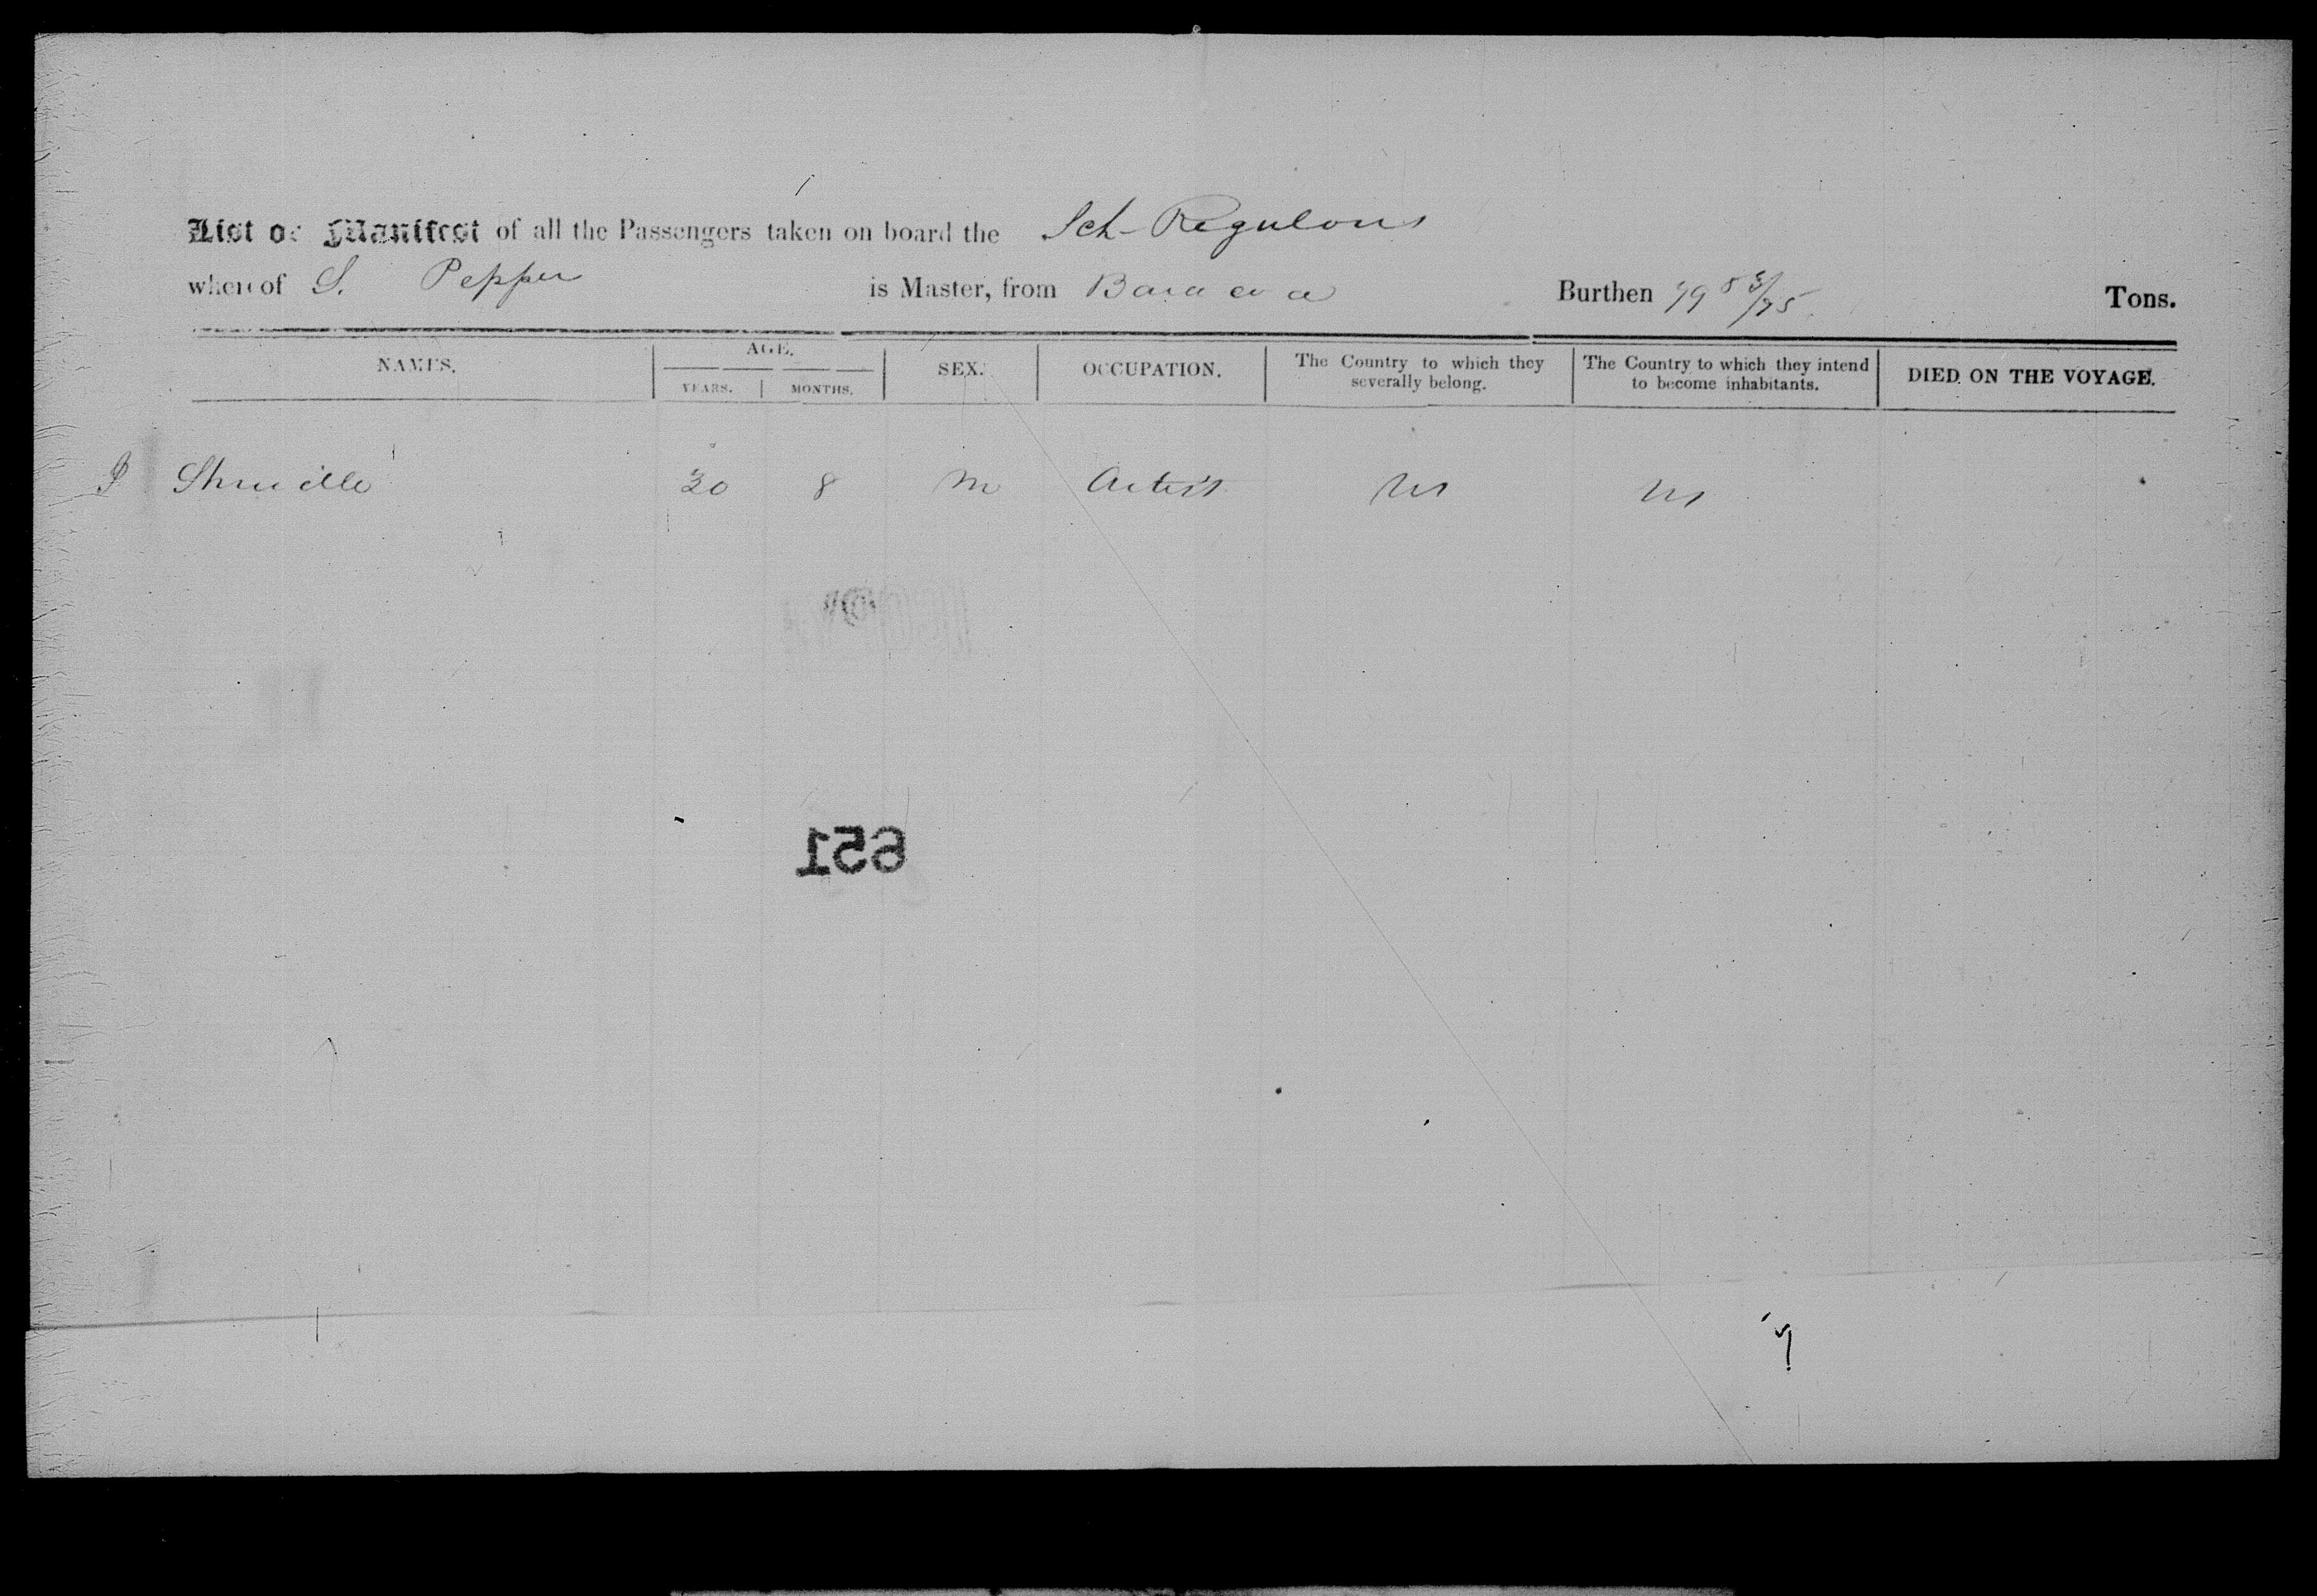 List or Manifest of all the Passengers taken on board the Sch- Regulous
whereof S. Pepper is Master, from Baracoa Burthen 99 53/95 Tons.
NAMES. AGE. SEX. OCCUPATION. The Country to which they severally belong. The Country to which they intend to become inhabitants. DIED ON THE VOYAGE.
YEARS. MONTHS.
30 8 M Artist US US
651